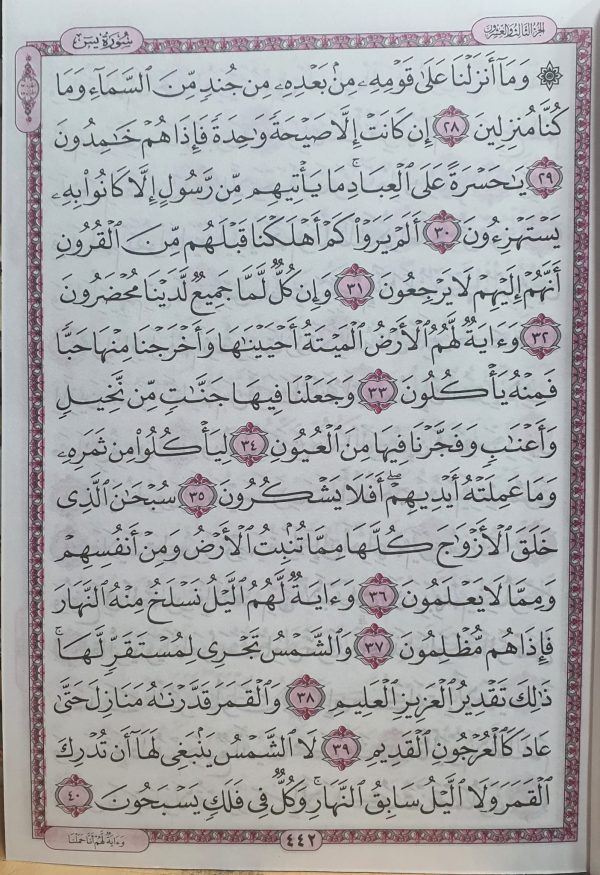 الجزء الثالث والعشرون
سُورَةُ يسٓ
۞ وَمَآ أَنزَلۡنَا عَلَىٰ قَوۡمِهِۦ مِنۢ بَعۡدِهِۦ مِن جُندٖ مِّنَ ٱلسَّمَآءِ وَمَا
كُنَّا مُنزِلِينَ ٢٨ إِن كَانَتۡ إِلَّا صَيۡحَةٗ وَٰحِدَةٗ فَإِذَا هُمۡ خَٰمِدُونَ
٢٩ يَٰحَسۡرَةً عَلَى ٱلۡعِبَادِۚ مَا يَأۡتِيهِم مِّن رَّسُولٍ إِلَّا كَانُواْ بِهِۦ
يَسۡتَهۡزِءُونَ ٣٠ أَلَمۡ يَرَوۡاْ كَمۡ أَهۡلَكۡنَا قَبۡلَهُم مِّنَ ٱلۡقُرُونِ
أَنَّهُمۡ إِلَيۡهِمۡ لَا يَرۡجِعُونَ ٣١ وَإِن كُلّٞ لَّمَّا جَمِيعٞ لَّدَيۡنَا مُحۡضَرُونَ
٣٢ وَءَايَةٞ لَّهُمُ ٱلۡأَرۡضُ ٱلۡمَيۡتَةُ أَحۡيَيۡنَٰهَا وَأَخۡرَجۡنَا مِنۡهَا حَبّٗا
فَمِنۡهُ يَأۡكُلُونَ ٣٣ وَجَعَلۡنَا فِيهَا جَنَّٰتٖ مِّن نَّخِيلٖ
وَأَعۡنَٰبٖ وَفَجَّرۡنَا فِيهَا مِنَ ٱلۡعُيُونِ ٣٤ لِيَأۡكُلُواْ مِن ثَمَرِهِۦ
وَمَا عَمِلَتۡهُ أَيۡدِيهِمۡۚ أَفَلَا يَشۡكُرُونَ ٣٥ سُبۡحَٰنَ ٱلَّذِي
خَلَقَ ٱلۡأَزۡوَٰجَ كُلَّهَا مِمَّا تُنۢبِتُ ٱلۡأَرۡضُ وَمِنۡ أَنفُسِهِمۡ
وَمِمَّا لَا يَعۡلَمُونَ ٣٦ وَءَايَةٞ لَّهُمُ ٱلَّيۡلُ نَسۡلَخُ مِنۡهُ ٱلنَّهَارَ
فَإِذَا هُم مُّظۡلِمُونَ ٣٧ وَٱلشَّمۡسُ تَجۡرِي لِمُسۡتَقَرّٖ لَّهَاۚ
ذَٰلِكَ تَقۡدِيرُ ٱلۡعَزِيزِ ٱلۡعَلِيمِ ٣٨ وَٱلۡقَمَرَ قَدَّرۡنَٰهُ مَنَازِلَ حَتَّىٰ
عَادَ كَٱلۡعُرۡجُونِ ٱلۡقَدِيمِ ٣٩ لَا ٱلشَّمۡسُ يَنۢبَغِي لَهَآ أَن تُدۡرِكَ
ٱلۡقَمَرَ وَلَا ٱلَّيۡلُ سَابِقُ ٱلنَّهَارِۚ وَكُلّٞ فِي فَلَكٖ يَسۡبَحُونَ ٤٠
٤٤٢
وَءَايَةٌ لَّهُمْ أَنَّا حَمَلْنَا